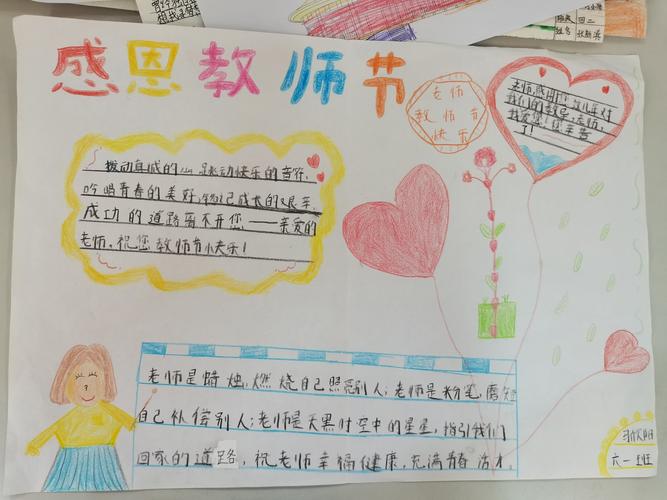 感恩教师节
老师
教师节
快乐
老师,感谢您这几年对
我们的教导,老师,
我爱您!您辛苦
了!
拨动真诚的心弦,是快乐的音符,
吟唱青春的美好,铭记成长的艰辛,
成功的道路离不开您——亲爱的
老师,祝您教师节小快乐!
老师是蜡烛,燃烧自己照亮别人;老师是粉笔,磨短
自己补偿别人;老师是天黑时空中的星星,指引我们
回家的道路,祝老师幸福健康,充满青春活力.
六一班